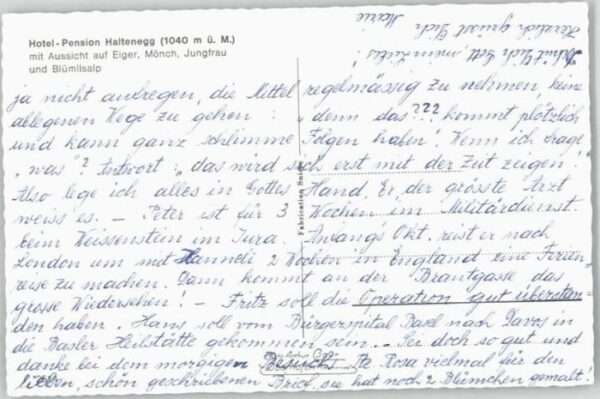 Hotel-Pension Haltenegg (1040 m ü. M.)
mit Aussicht auf Eiger, Mönch, Jungfrau
und Blümlisalp
ja nicht aufregen, die Mittel regelmässig zu nehmen, keine
ablegenen Wege zu gehen: "denn das??? kommt plötzlich
und kann ganz schlimme Folgen haben". Wenn ich frage
"was"? Antwort: "das wird sich erst mit der Zeit zeigen!
Also lege ich alles in Gottes Hand. Er, der grösste Arzt
weiss es. — Peter ist für 3 Wochen im Militärdienst.
beim Weissenstein im Jura. Anfangs Okt. reist er nach
London um mit Hanneli 2 Wochen in England eine Ferien-
reise zu machen. Dann kommt an der Brantgasse das
grosse Wiedersehen! — Fritz soll die Operation gut überstan-
den haben. Hans soll vom Bürgerspital Basel nach Davos in
die Basler Heilstätte gekommen sein. — Sei doch so gut und
danke bei dem morgigen Besuch Rosa vielmal für den
lieben, schön geschriebenen Brief, sie hat noch 2 Blümchen gemalt!
Behüt Dich Gott, mein
Herzlich grüsst Dich
Marie
Fabrication